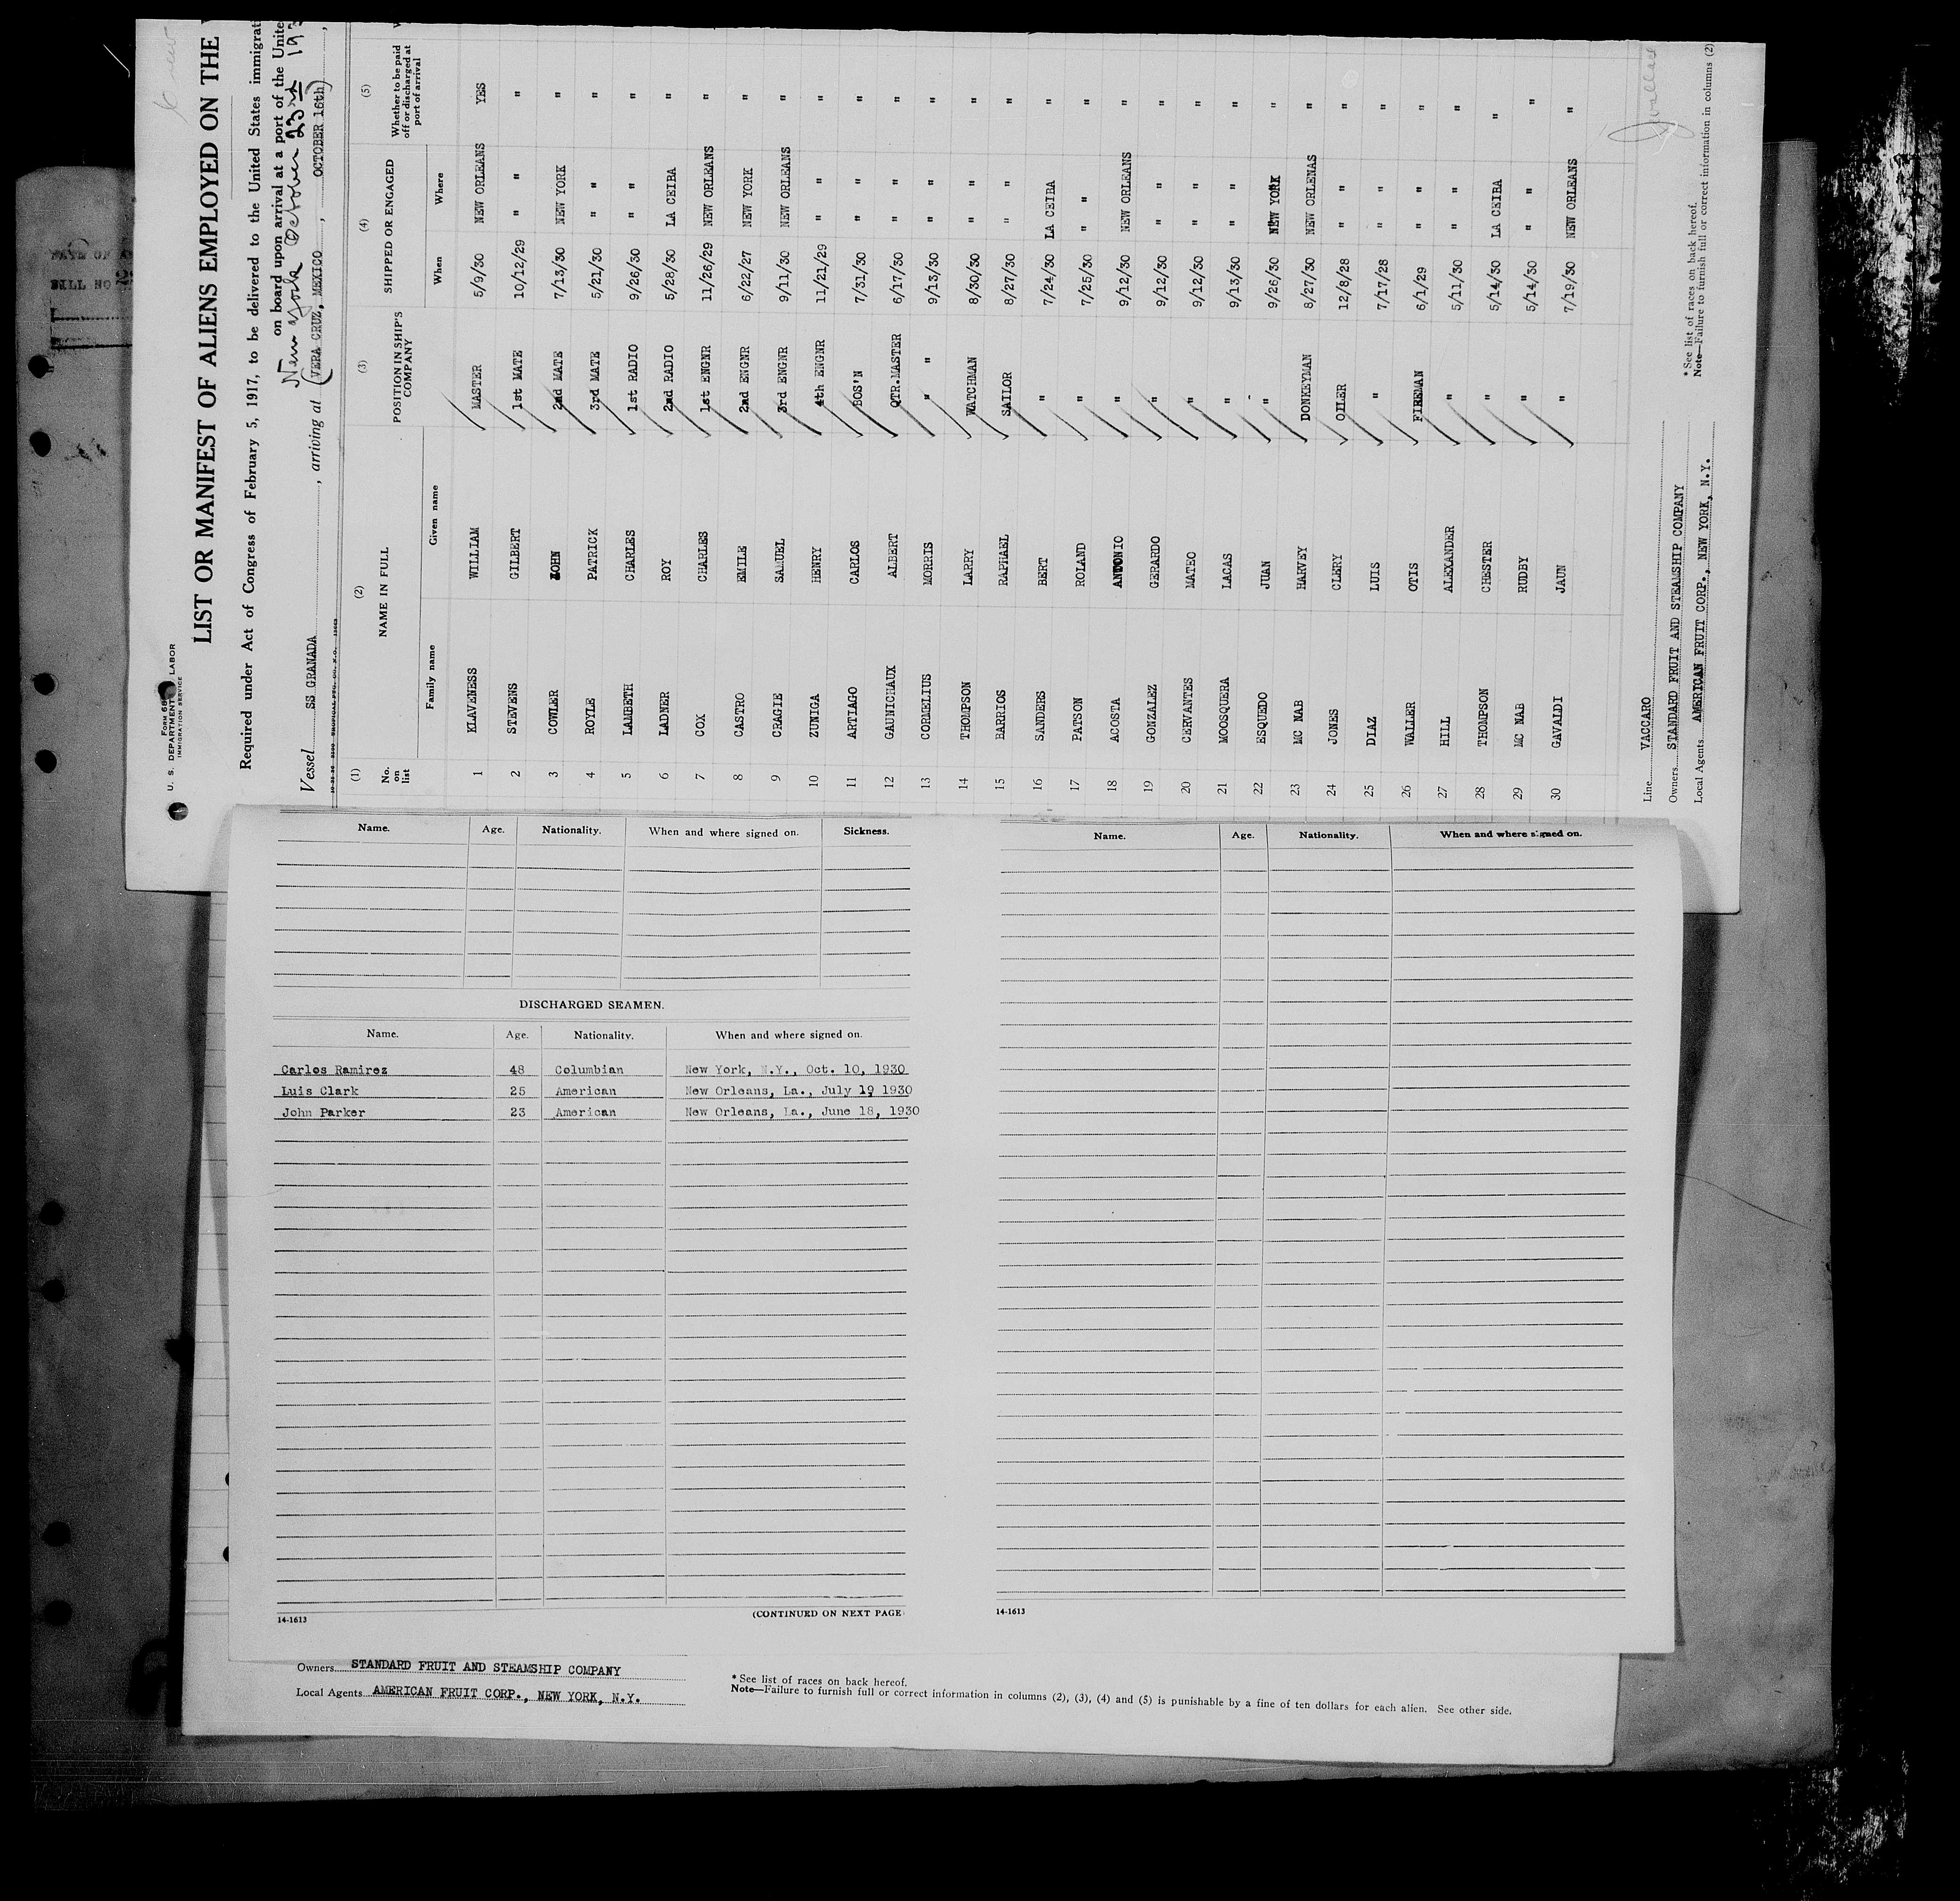 FORM 680
U. S. DEPARTMENT LABOR
IMMIGRATION SERVICE
LIST OR MANIFEST OF ALIENS EMPLOYED ON THE
Required under Act of Congress of February 5, 1917, to be delivered to the United States immigrati
on board upon arrival at a port of the Unite
New York October 23rd 193
Vessel SS GRANADA , arriving at (VERA CRUZ, MEXICO , OCTOBER 16th) ,
(1) (2) (3) (4) (5)
No. on list NAME IN FULL POSITION IN SHIP'S COMPANY SHIPPED OR ENGAGED Whether to be paid off or discharged at port of arrival
Family name Given name When Where
1 KLAVENESS WILLIAM MASTER 5/9/30 NEW ORLEANS YES
2 STEVENS GILBERT 1st MATE 10/12/29 " " "
3 COWLER JOHN 2nd MATE 7/13/30 NEW YORK "
4 ROYLE PATRICK 3rd MATE 5/21/30 " " "
5 LAMBETH CHARLES 1st RADIO 9/26/30 " " "
6 LADNER ROY 2nd RADIO 5/28/30 LA CEIBA "
7 COX CHARLES 1st ENGNR 11/26/29 NEW ORLEANS "
8 CASTRO EMILE 2nd ENGNR 6/22/27 NEW YORK "
9 CRAGIE SAMUEL 3rd ENGNR 9/11/30 NEW ORLEANS "
10 ZUNIGA HENRY 4th ENGNR 11/21/29 " " "
11 ARTIAGO CARLOS BOS'N 7/31/30 " " "
12 GAUNICHAUX ALBERT QTR.MASTER 6/17/30 " " "
13 CORNELIUS MORRIS " " 9/13/30 " " "
14 THOMPSON LARRY WATCHMAN 8/30/30 " " "
15 BARRIOS RAPHAEL SAILOR 8/27/30 " " "
16 SANDERS BERT " 7/24/30 LA CEIBA "
17 PATSON ROLAND " 7/25/30 " " "
18 ACOSTA ANTONIO " 9/12/30 NEW ORLEANS "
19 GONZALEZ GERARDO " 9/12/30 " " "
20 CERVANTES MATEO " 9/12/30 " " "
21 MOOSQUERA LACAS " 9/13/30 " " "
22 ESQUEDO JUAN " 9/26/30 NEW YORK "
23 MC NAB HARVEY DONKEYMAN 8/27/30 NEW ORLENAS "
24 JONES CLERY OILER 12/8/28 " " "
25 DIAZ LUIS " 7/17/28 " " "
26 WALLER OTIS FIREMAN 6/1/29 " " "
27 HILL ALEXANDER " 5/11/30 " " "
28 THOMPSON CHESTER " 5/14/30 LA CEIBA "
29 MC NAB RUDBY " 5/14/30 " " "
30 GAVALDI JAUN " 7/19/30 NEW ORLEANS "
Line VACCARO
Owners STANDARD FRUIT AND STEAMSHIP COMPANY
Local Agents AMERICAN FRUIT CORP., NEW YORK, N.Y.
* See list of races on back hereof.
Note—Failure to furnish full or correct information in columns (2)
Name. Age. Nationality. When and where signed on. Sickness.
DISCHARGED SEAMEN.
Name. Age. Nationality. When and where signed on.
Carlos Ramirez 48 Columbian New York, N.Y., Oct. 10, 1930
Luis Clark 25 American New Orleans, La., July 19 1930
John Parker 23 American New Orleans, La., June 18, 1930
14-1613 (CONTINUED ON NEXT PAGE
Name. Age. Nationality. When and where signed on.
14-1613
Owners STANDARD FRUIT AND STEAMSHIP COMPANY
Local Agents AMERICAN FRUIT CORP., NEW YORK, N.Y.
* See list of races on back hereof.
Note—Failure to furnish full or correct information in columns (2), (3), (4) and (5) is punishable by a fine of ten dollars for each alien. See other side.